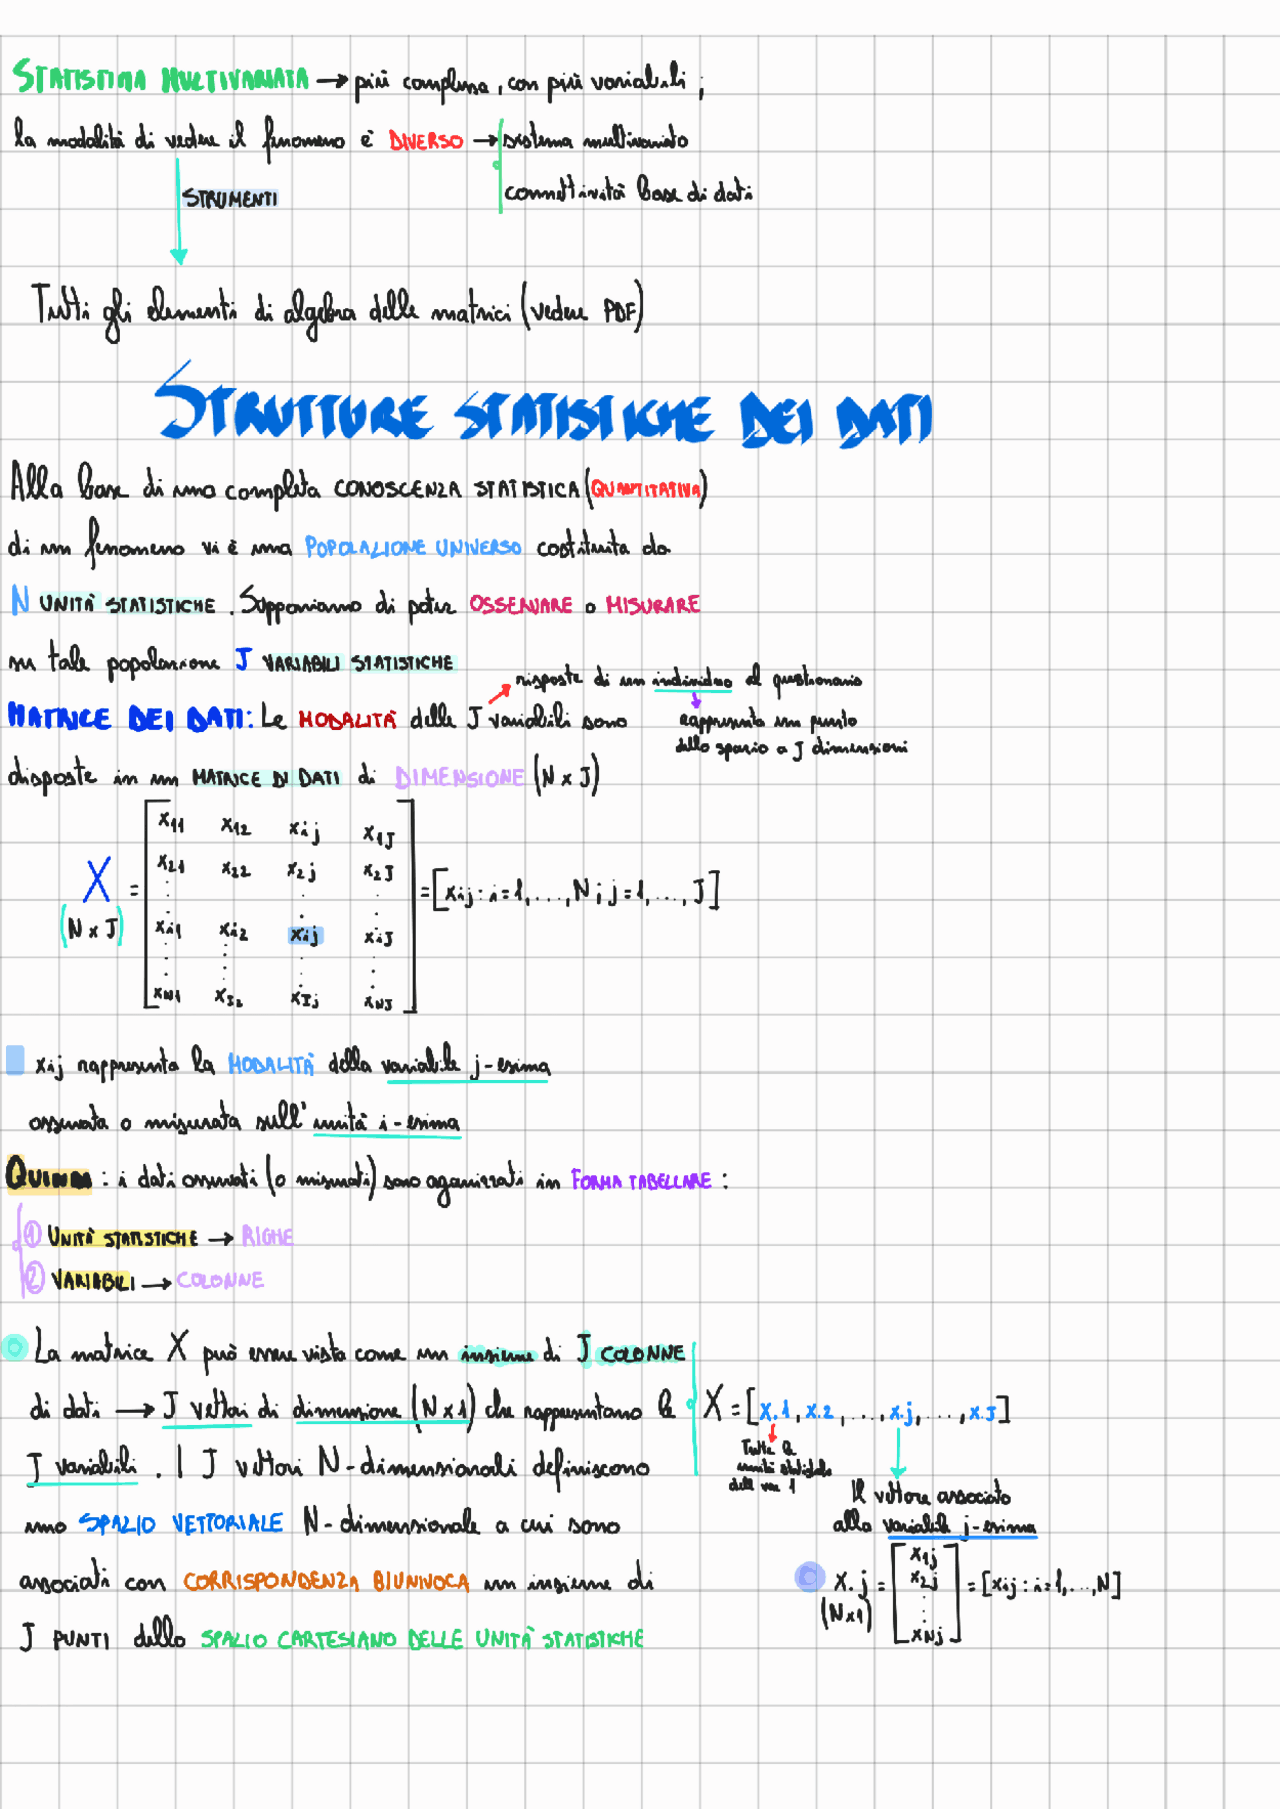 STATISTINA MULTIVARIATA → più complessa, con più variabili;
la modalità di vedere il fenomeno è DIVERSO → sistema multivariato
connettività base di dati
STRUMENTI
Tutti gli elementi di algebra delle matrici (vedere PDF)
STRUTTURE STATISTICHE DEI DATI
Alla base di una completa CONOSCENZA STATISTICA (QUANTITATIVA)
di un fenomeno vi è una POPOLAZIONE UNIVERSO costituita da
N UNITÀ STATISTICHE. Supponiamo di poter OSSERVARE o MISURARE
su tale popolazione J VARIABILI STATISTICHE
risposte di un individuo al questionario
MATRICE DEI DATI: Le MODALITÀ delle J variabili sono
rappresenta un punto
dello spazio a J dimensioni
disposte in un MATRICE DI DATI di DIMENSIONE (N x J)
x11 x12 xij x1J
x21 x22 x2j x2J
X = = [xij : i = 1, ..., N; j = 1, ..., J]
(N x J)
xi1 xi2 xij xiJ
xN1 xI2 xIj xNJ
xij rappresenta la MODALITÀ della variabile j-esima
osservata o misurata sull'unità i-esima
QUINDI: i dati osservati (o misurati) sono organizzati in FORMA TABELLARE:
① UNITÀ STATISTICHE → RIGHE
② VARIABILI → COLONNE
La matrice X può essere vista come un insieme di J COLONNE
di dati → J vettori di dimensione (N x 1) che rappresentano le
J variabili. I J vettori N-dimensionali definiscono
uno SPAZIO VETTORIALE N-dimensionale a cui sono
associati con CORRISPONDENZA BIUNIVOCA un insieme di
J PUNTI dello SPAZIO CARTESIANO DELLE UNITÀ STATISTICHE
X = [x.1, x.2, ..., x.j, ..., x.J]
Tutte le
unità statistiche
della var 1
Il vettore associato
alla variabile j-esima
x1j
x.j = x2j = [xij : i = 1, ..., N]
(N x 1)
xNj